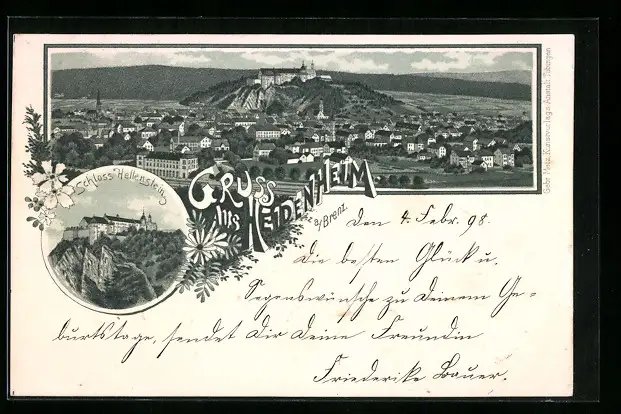 Gebr. Metz, Kunstverlags-Anstalt, Tübingen
Schloss Hellenstein
Gruss
aus Heidenheim
a/Brenz.
Den 4. Febr. 98.
Die besten Glück u.
Segenswünsche zu Deinem Ge-
burtstage, sendet Dir Deine Freundin
Friederike Bauer.